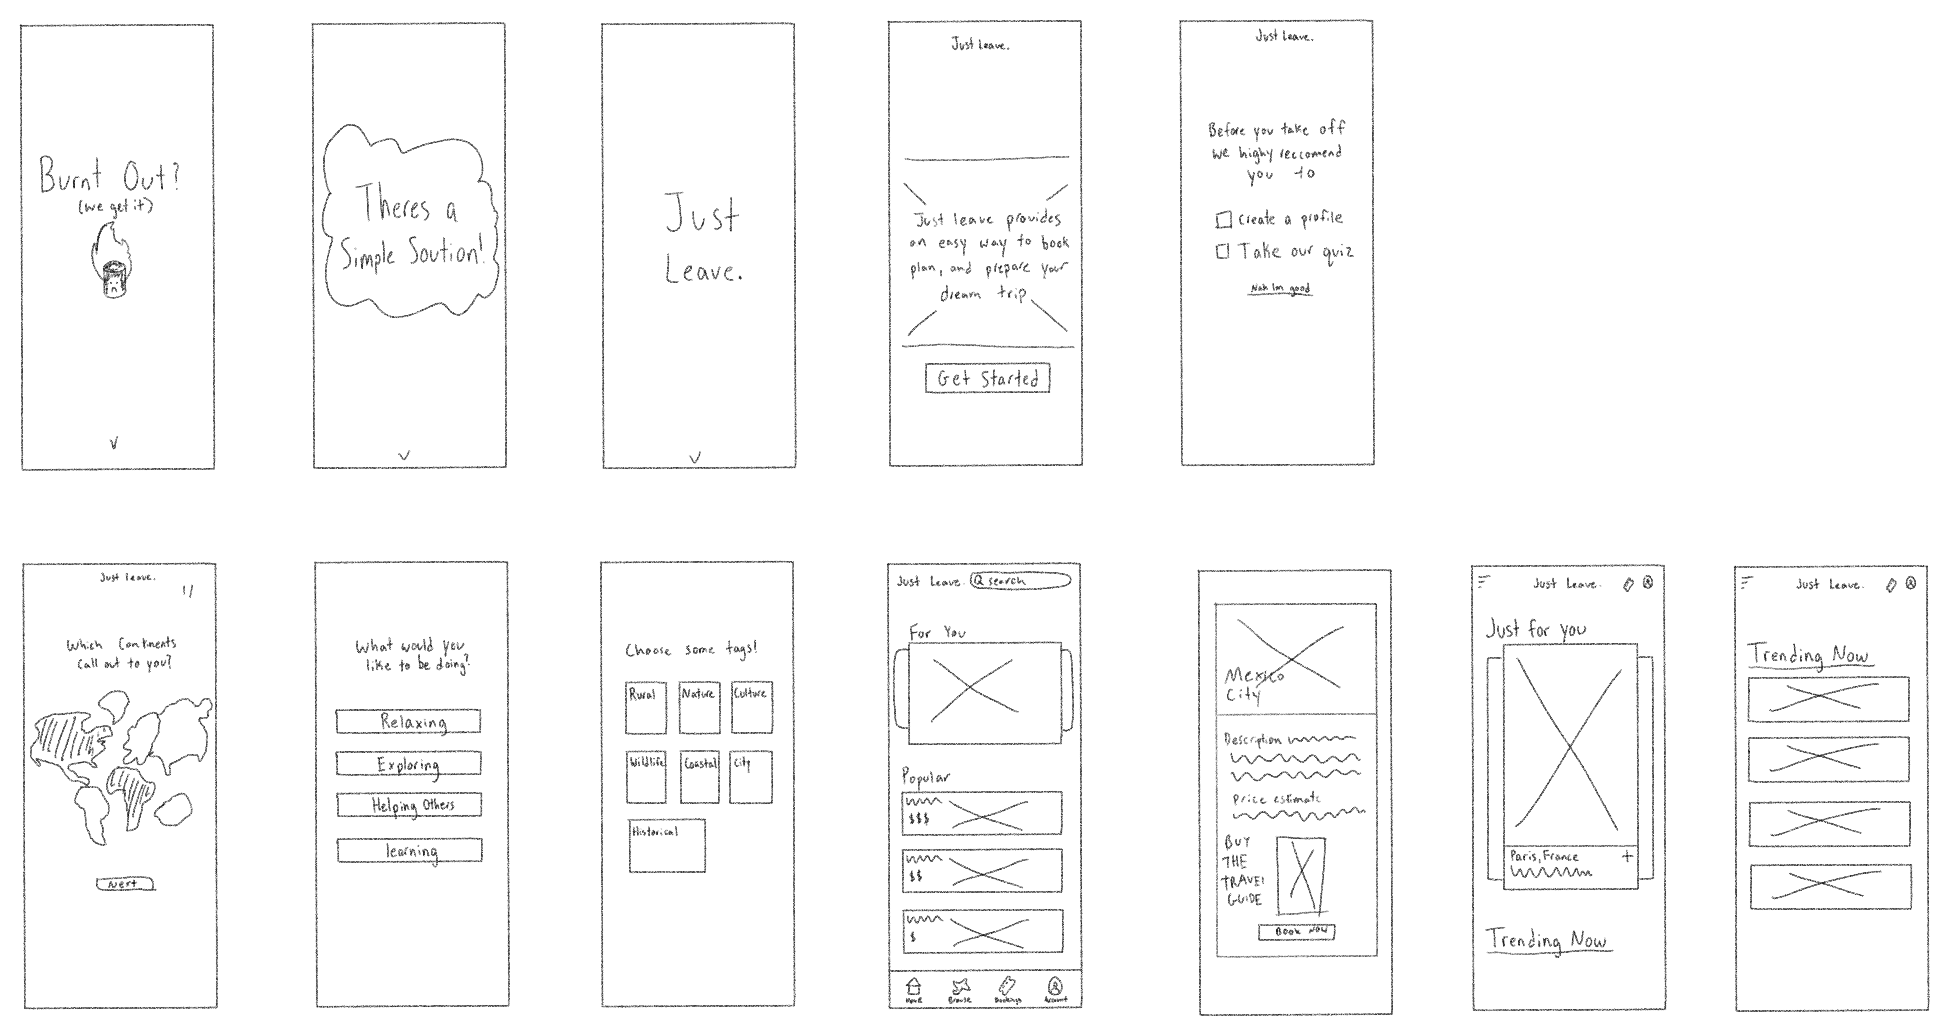 Burnt Out?
(we get it)
Theres a
Simple Soution!
Just
Leave.
Just leave.
Just leave provides
an easy way to book
plan, and prepare your
dream trip
Get Started
Just leave.
Before you take off
we highy reccomend
you to
Create a profile
Take our quiz
Nah Im good
Just leave.
1/
Which Continents
Call out to you?
Next
What would you
like to be doing?
Relaxing
Exploring
Helping Others
learning
Choose some tags!
Rural
Nature
Culture
Wildlife
Coastal
City
Historical
Just Leave.
search
For You
Popular
$$$
$$
$
Home
Browse
Bookings
Account
Mexico
City
Description
Price estimate
BUY
THE
TRAVEl
GUIDE
BOOK NOW
Just Leave.
Just for you
Paris, France
+
Trending Now
Just Leave.
Trending Now